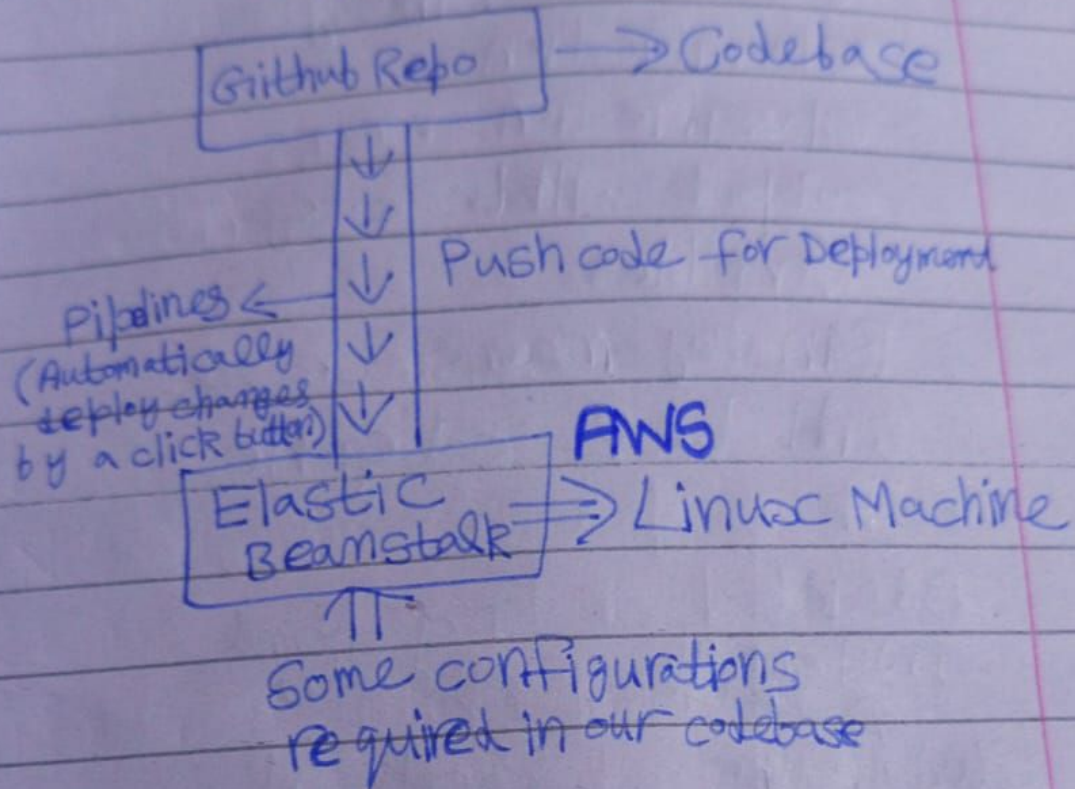 Github Repo
Codebase
Push code for Deployment
Pipelines
(Automatically
deploy changes
by a click button)
AWS
Elastic
Beamstalk
Linux Machine
Some configurations
required in our codebase